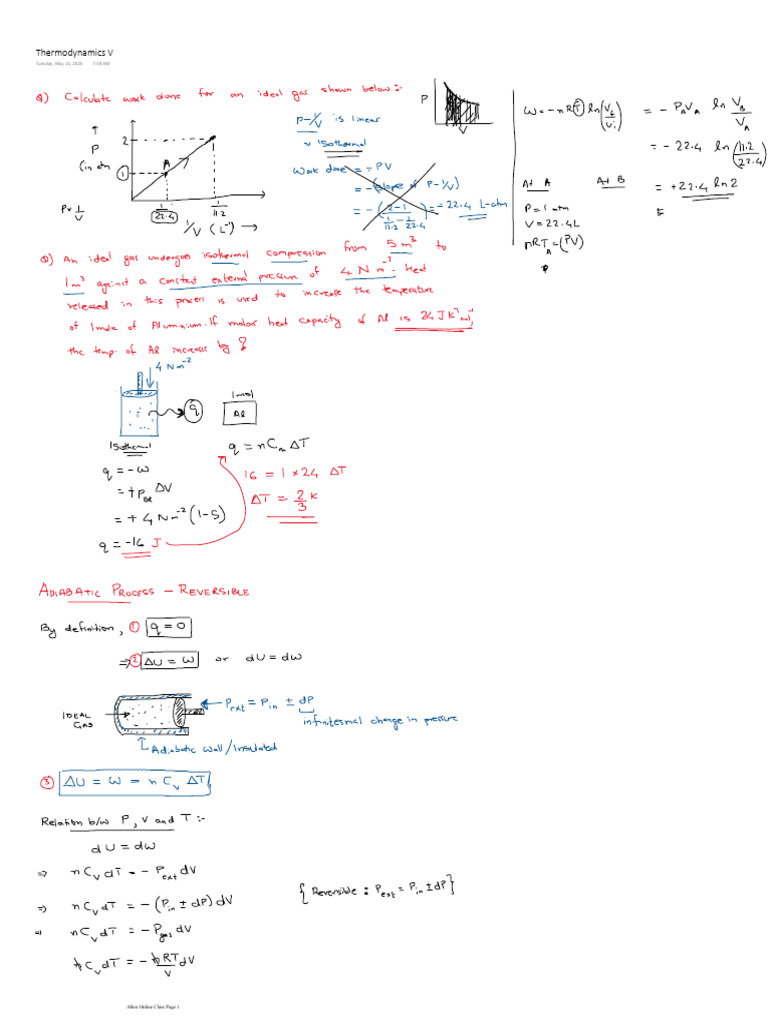 Thermodynamics V
Tuesday, May 13, 2025 7:59 AM
Q) Calculate work done for an ideal gas shown below:-
↑
P
(in atm
2
1
A
P∝ 1/V
1/22.4
1/11.2
1/V (L⁻¹) →
P-1/V is linear
⇒ Isothermal
Work done = -PV
= -(slope of P-1/V)
= -(2-1 / (1/11.2 - 2/22.4)) = -22.4 L-atm
P
V
W = -nRT ln(V₂/V₁) = -P_A V_A ln V_B/V_A
= -22.4 ln(11.2/22.4)
= +22.4 ln2
At A
At B
P = 1 atm
V = 22.4L
nRT_A = (PV)
Q) An ideal gas undergoes isothermal compression from 5 m³ to
1 m³ against a constant external pressure of 4 N m⁻². Heat
released in this process is used to increase the temperature
of 1 mole of Aluminium. If molar heat capacity of Al is 24 J K⁻¹ mol⁻¹,
the temp. of Al increase by ?
4 N m⁻²
q
1 mol
Al
Isothermal
q = -W
= +P_ext ΔV
= +4 N m⁻² (1-5)
q = -16 J
q = n C_m ΔT
16 = 1 × 24 ΔT
ΔT = 2/3 K
ADIABATIC PROCESS – REVERSIBLE
By definition, ① q = 0
⇒ ② ΔU = W or dU = dW
IDEAL GAS
P_ext = P_in ± dP
infinitesmal change in pressure
Adiabatic wall/Insulated
③ ΔU = W = n C_v ΔT
Relation b/w P, V and T :-
dU = dW
⇒ n C_v dT = - P_ext dV
⇒ n C_v dT = -(P_in ± dP) dV
{Reversible : P_ext = P_in ± dP}
⇒ n C_v dT = - P_gas dV
n C_v dT = - nRT/V dV
Allen Online Class Page 1